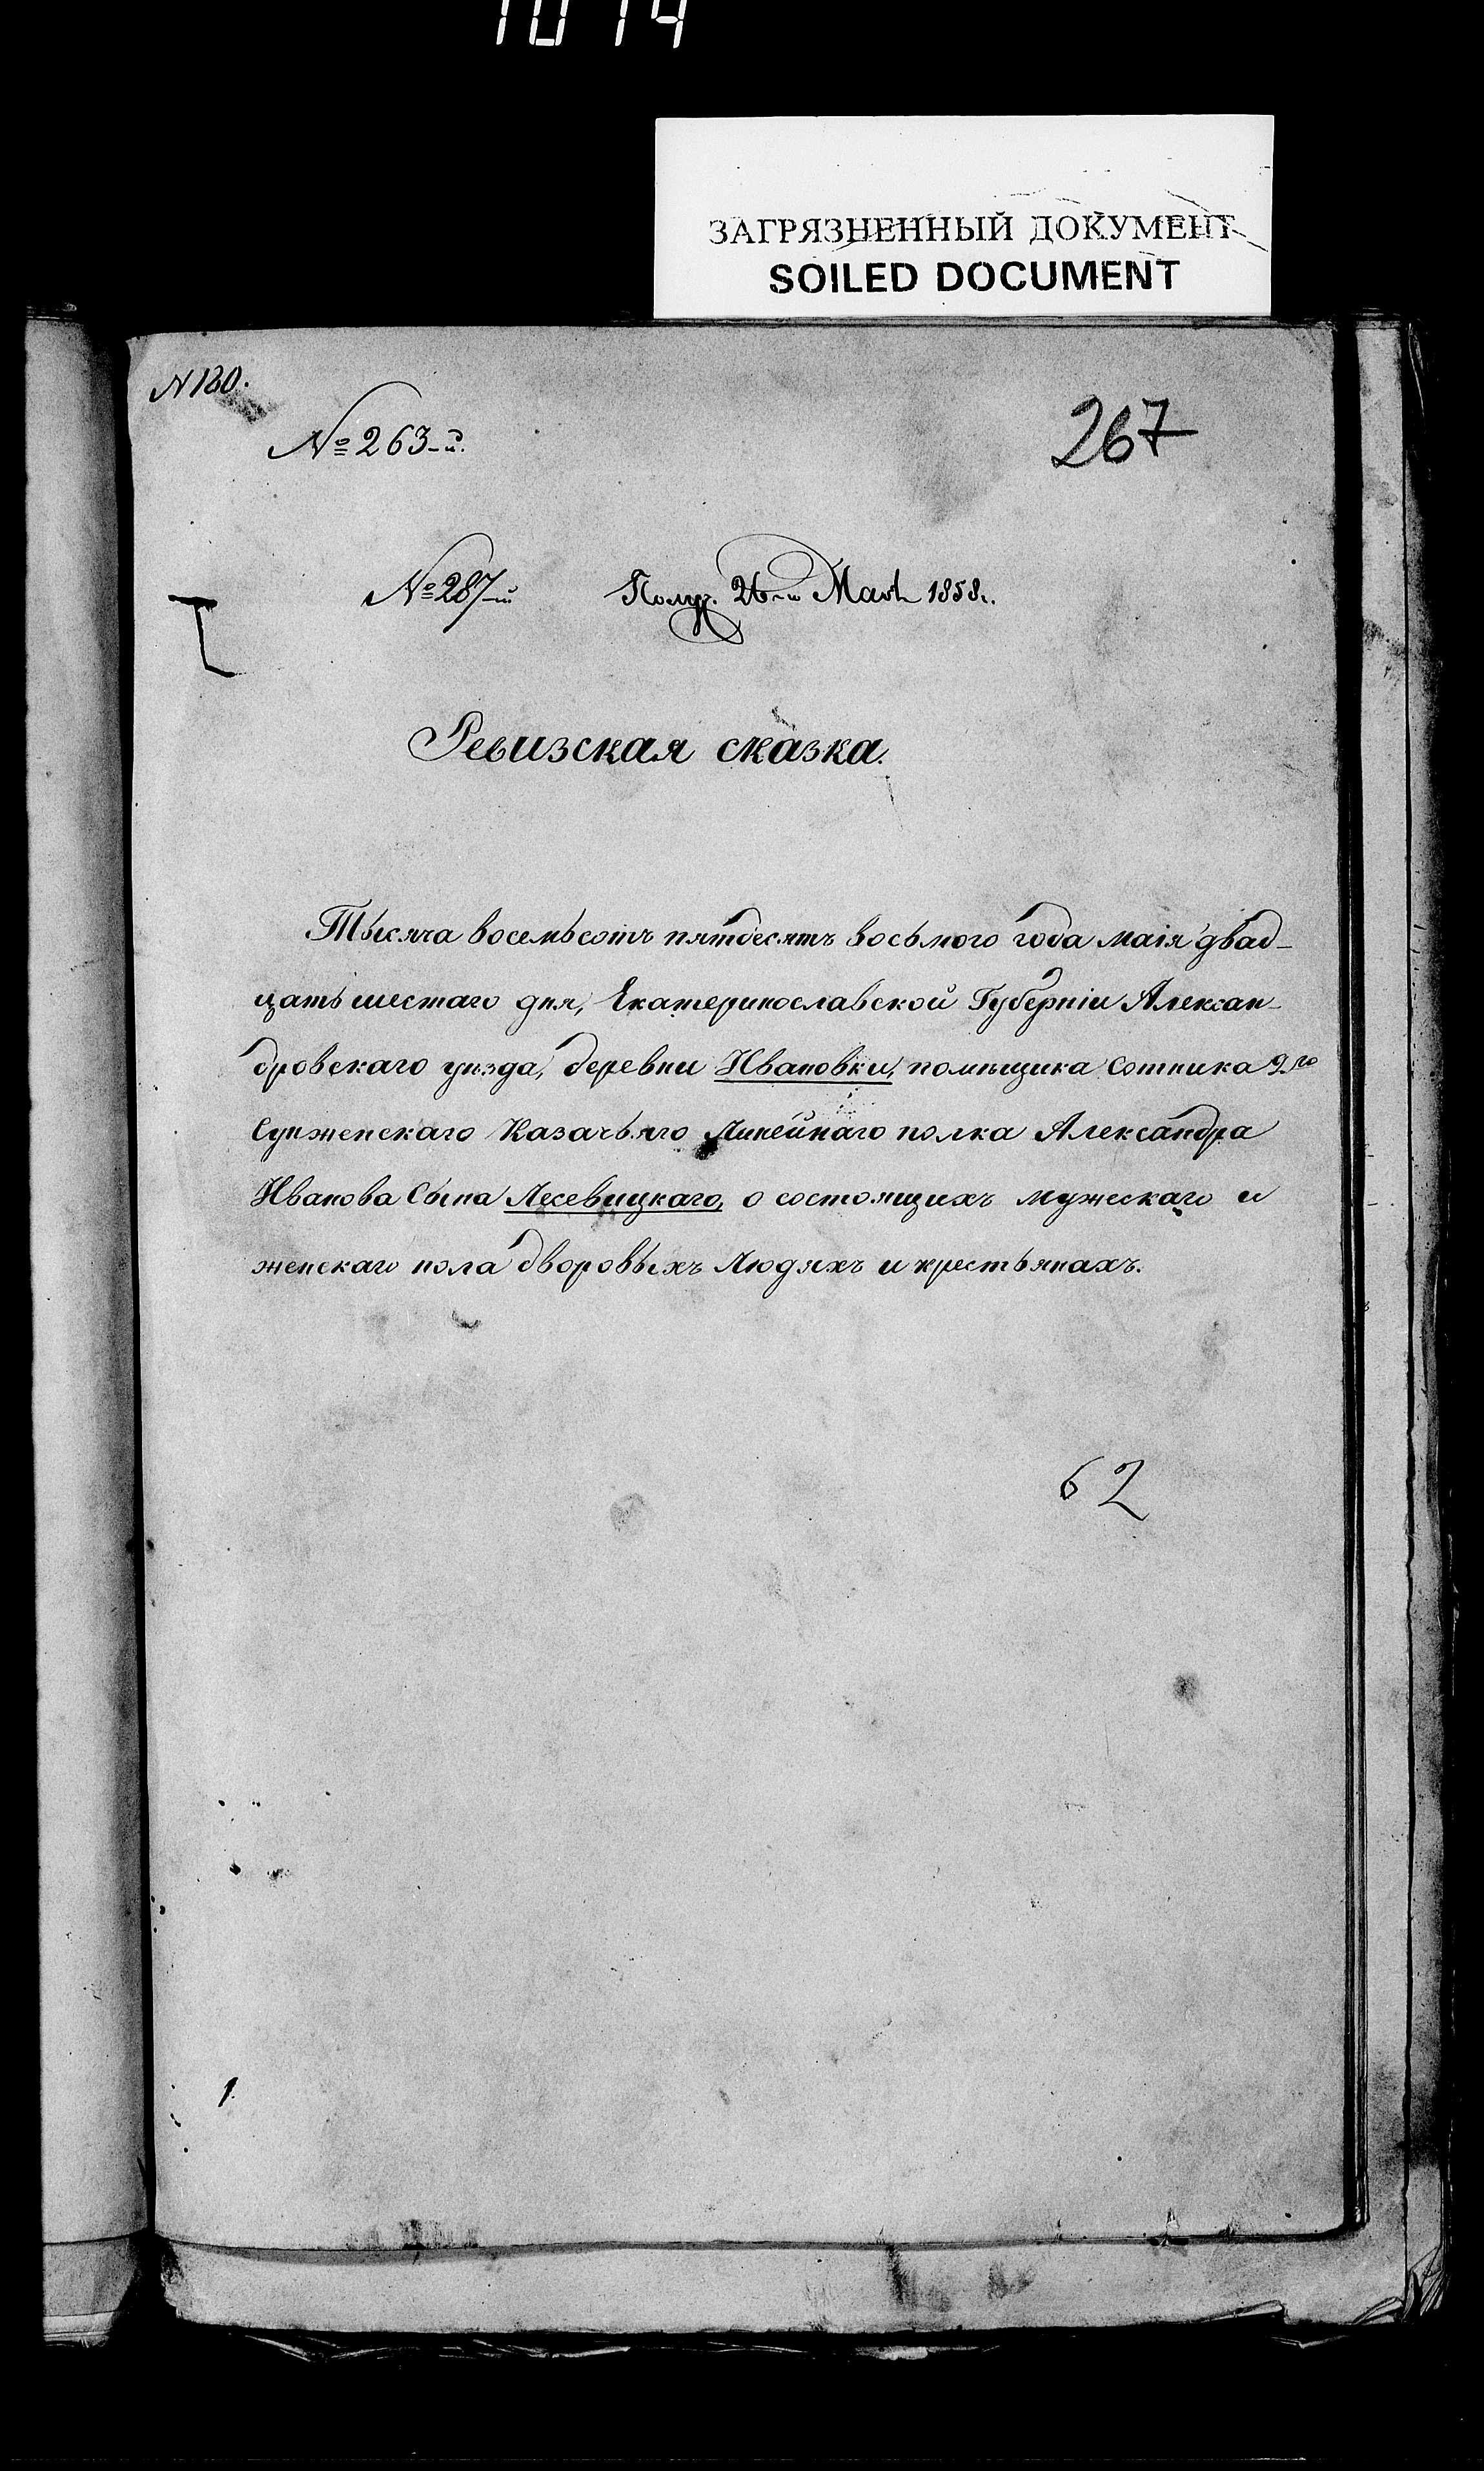 1014
ЗАГРЯЗНЕННЫЙ ДОКУМЕНТ
SOILED DOCUMENT
N 180.
№ 263-й.
267
№ 287-й Получ. 26-го Мая 1858 г.
Ревизская сказка.
Тысяча восемьсотъ пятдесятъ восьмого года маія двад-
цать шестаго дня, Екатеринославской Губерніи Алексан-
дровскаго уѣзда, деревни Ивановки, помѣщика Сотника 2-го
Сунженскаго Казачьяго Линейнаго полка Александра
Иванова Сына Лесевицкаго, о состоящихъ мужескаго и
женскаго пола дворовыхъ Людяхъ и крестьянахъ.
62
1.